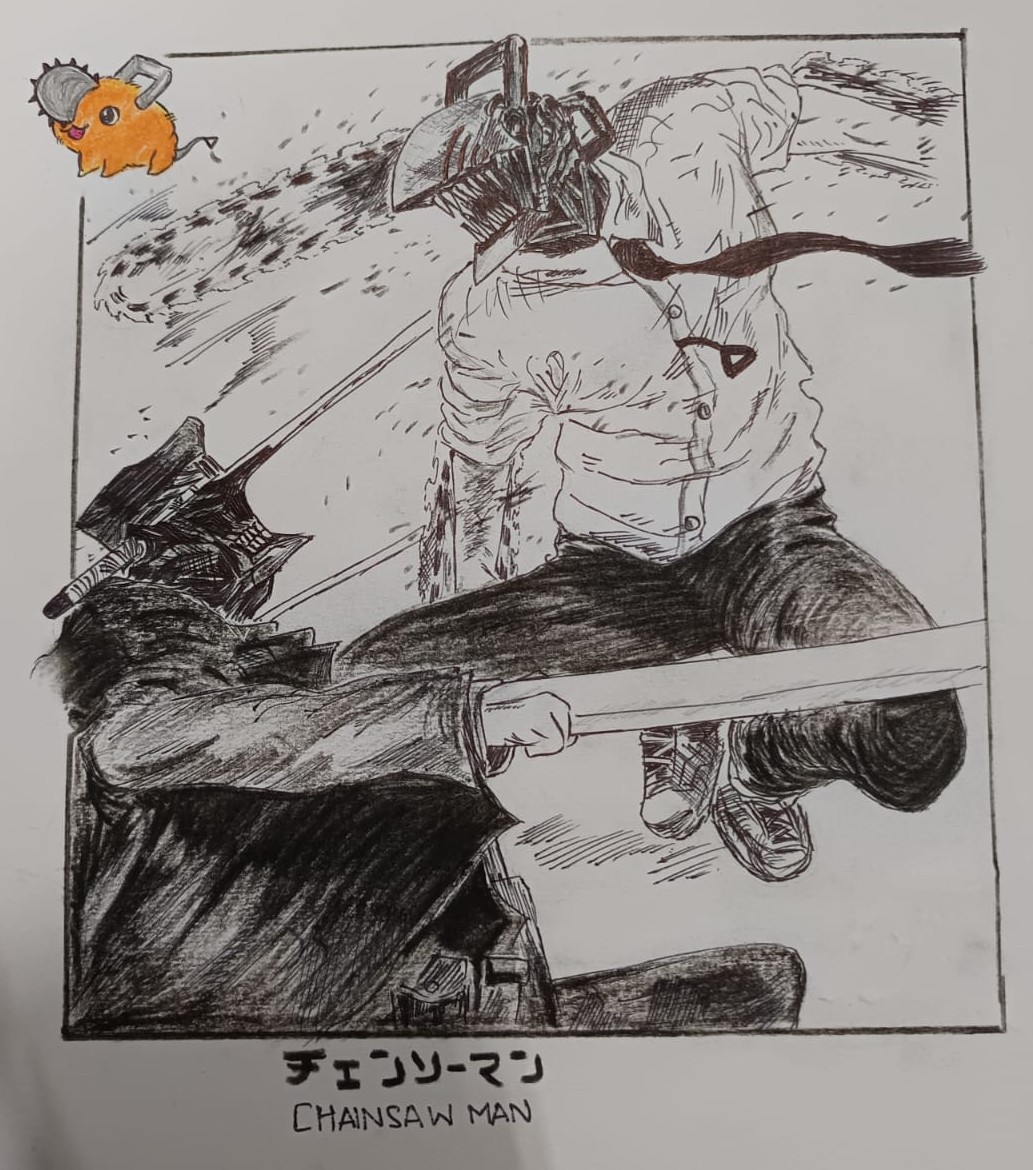 チェンソーマン
CHAINSAW MAN